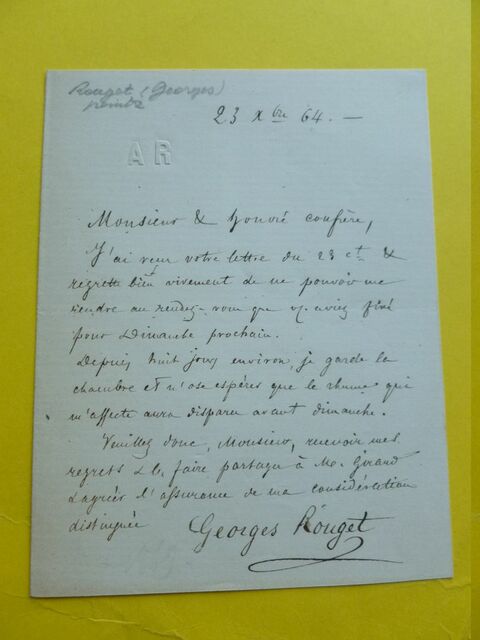 Rouget (Georges)
peintre
23 Xbre 64. —
AR
Monsieur & honoré confrère,
J'ai reçu votre lettre du 23 ct &
regrette bien vivement de ne pouvoir me
rendre au rendez-vous que vs aviez fixé
pour Dimanche prochain.
Depuis huit jours environ, je garde la
chambre et n'ose espérer que le rhume qui
m'affecte aura disparu avant dimanche.
Veuillez donc, Monsieur, recevoir mes
regrets & les faire partager à Mr. Girard
& agréer l'assurance de ma considération
distinguée
Georges Rouget